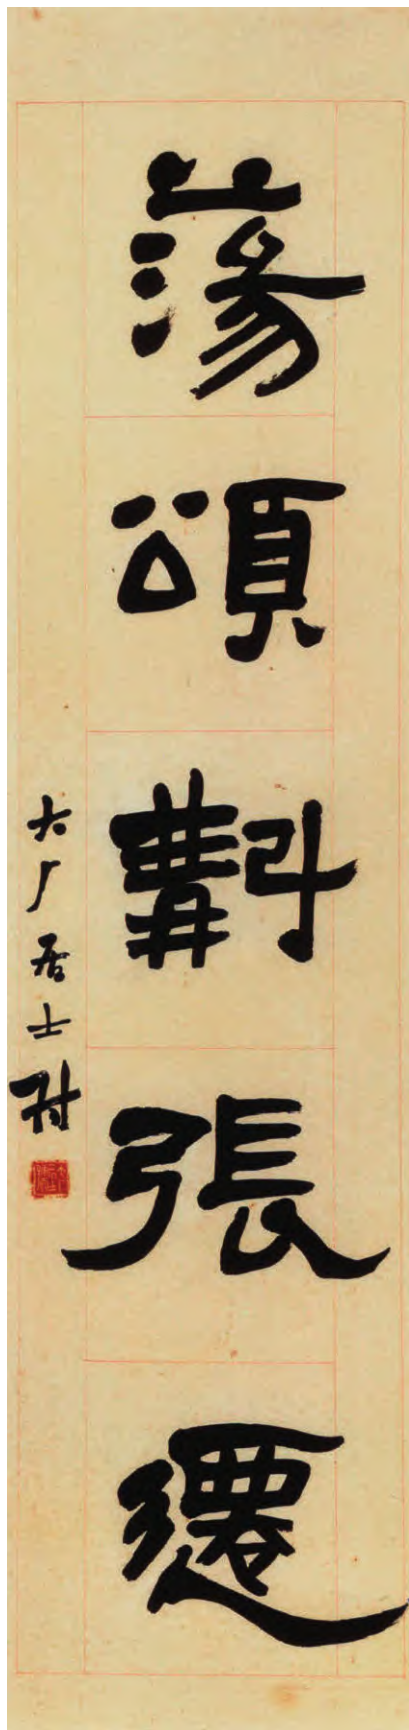 蕩頌斠張遷
大厂居士